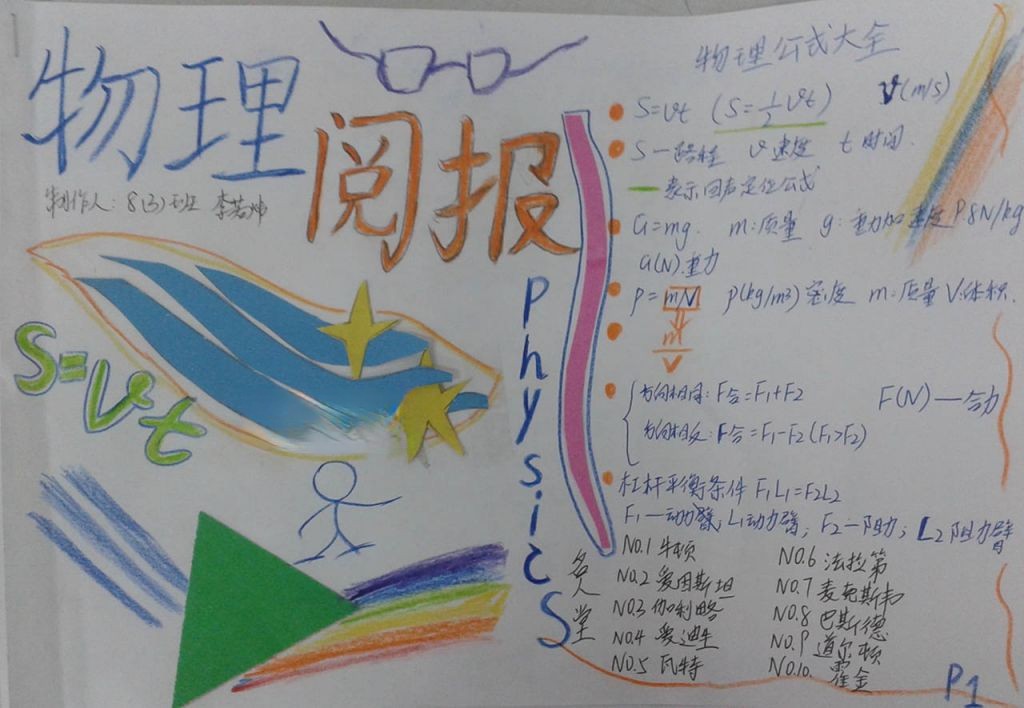 物理
阅报
制作人: 8(3)班 李若坤
S=vt
physics
物理公式大全
S=vt (S=½vt) v(m/s)
S—路程 v速度 t时间.
—表示回声定位公式
G=mg. m:质量 g:重力加速度 9.8N/kg
G(N).重力
ρ=m/V ρ(kg/m3)密度 m:质量 V:体积.
m
V
方向相同: F合=F1+F2 F(N)—合力
方向相反: F合=F1-F2 (F1>F2)
杠杆平衡条件 F1L1=F2L2
F1—动力臂, L1动力臂, F2—阻力; L2阻力臂
名人堂
NO.1 牛顿
NO.2 爱因斯坦
NO.3 伽利略
NO.4 爱迪生
NO.5 瓦特
NO.6 法拉第
NO.7 麦克斯韦
NO.8 巴斯德
NO.9 道尔顿
NO.10. 霍金
P1